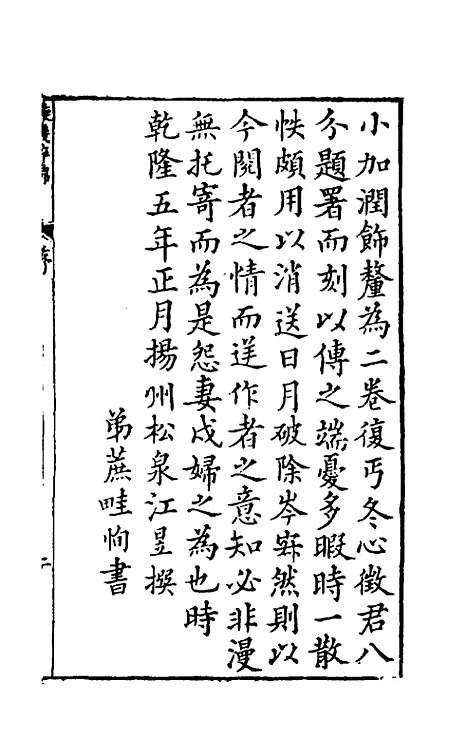 小加潤飾釐為二卷復丐冬心徵君八
分題署而刻以傳之端憂多暇時一散
帙頗用以消送日月破除岑寂然則以
今閱者之情而逆作者之意知必非漫
無托寄而為是怨妻戍婦之為也時
乾隆五年正月揚州松泉江昱撰
弟蔗畦恂書
序
二